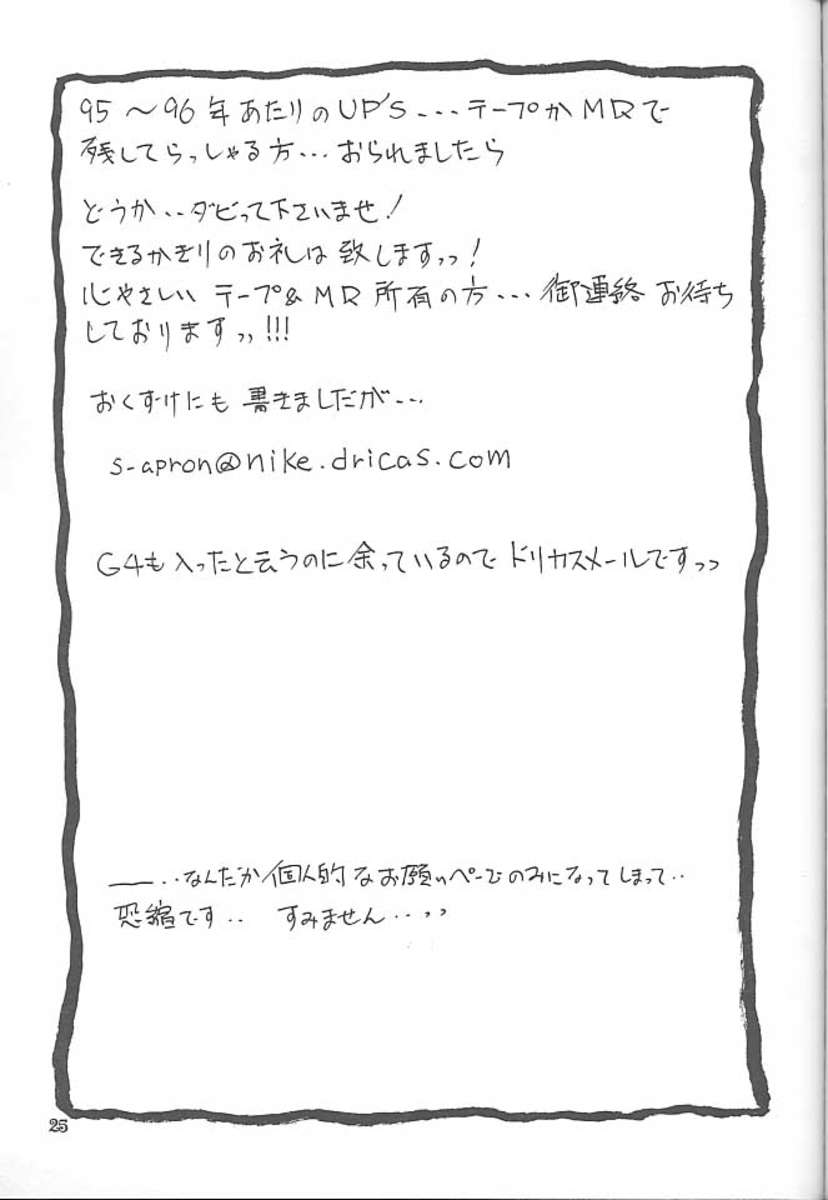 95～96年あたりのUP'S...テープかMDで
残してらっしゃる方...おられましたら
どうか..ダビって下さいませ!
できるかぎりのお礼は致しますっっ!
心やさしい テープ&MD 所有の方...御連絡お待ち
しておりますっっ!!!
おくずけにも 書きましだが...
s-apron@nike.dricas.com
G4も入ったと云うのに余っているので ドリカスメールですっっ
――..なんだか個人的なお願いぺーじのみになってしまって..
恐縮です.. すみません..っっ
25